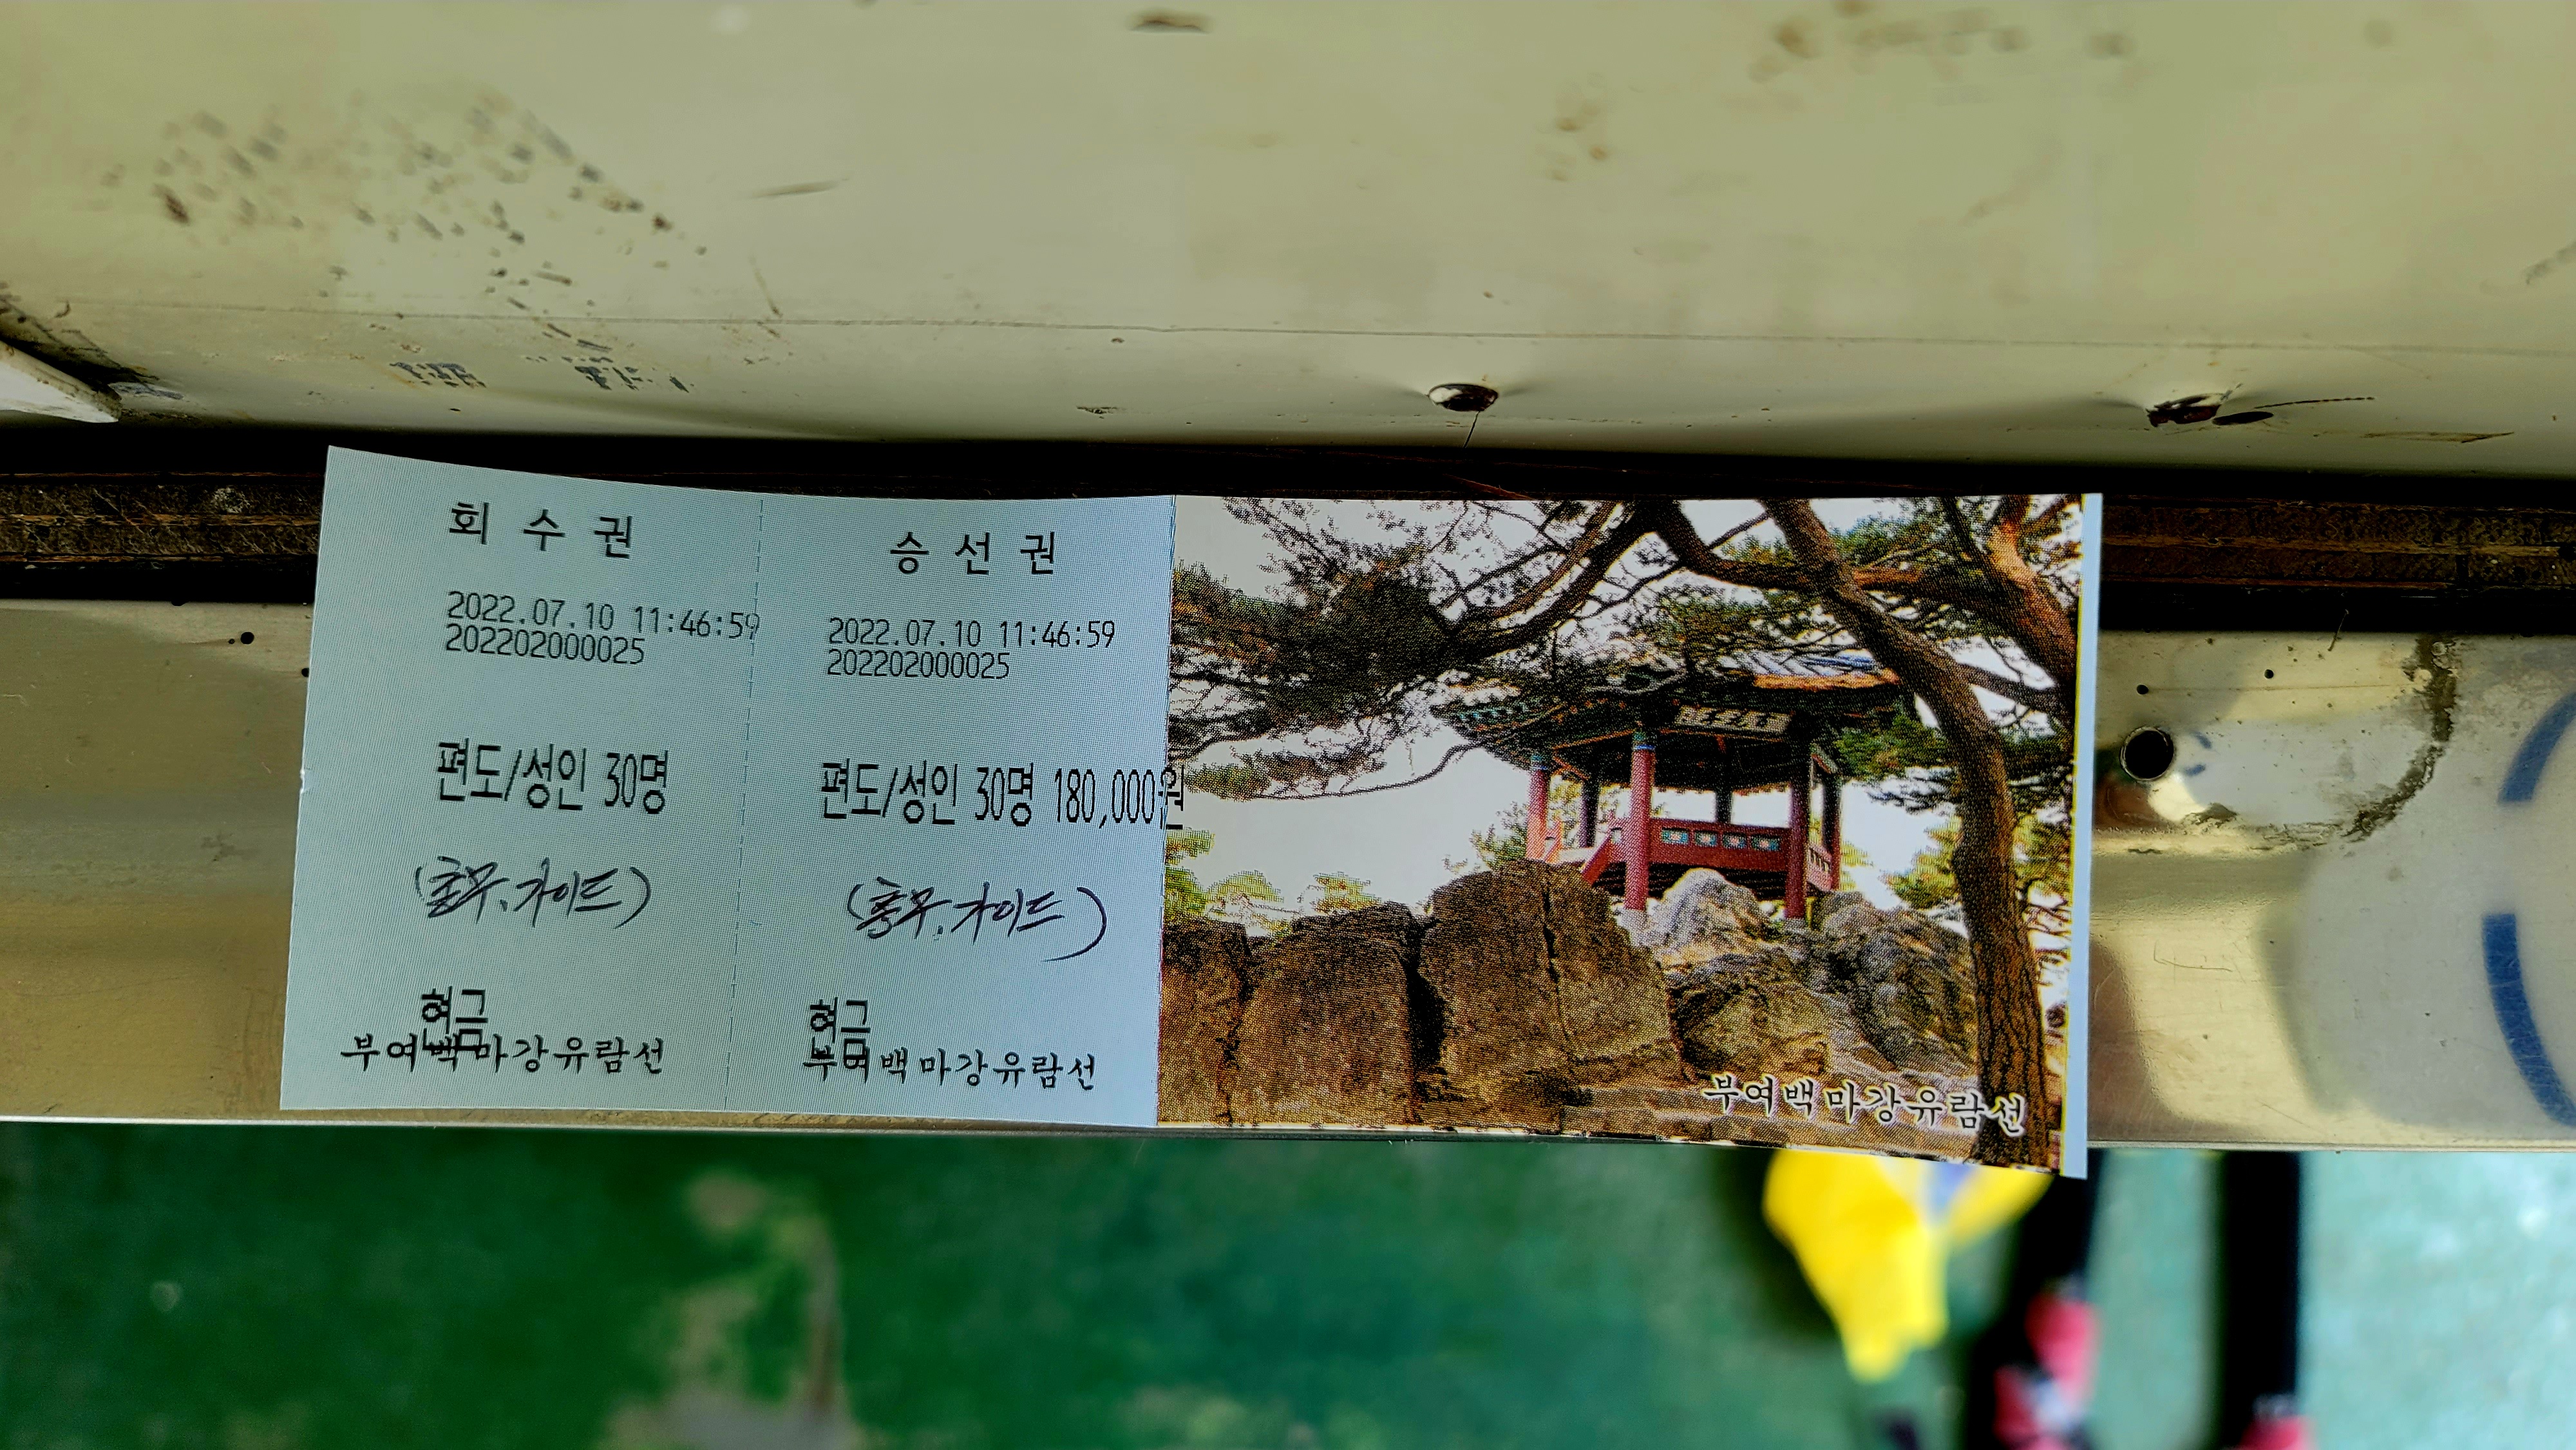 회 수 권
2022.07.10 11:46:59
202202000025
편도/성인 30명
(총무.가이드)
현금
부여백마강유람선
승 선 권
2022.07.10 11:46:59
202202000025
편도/성인 30명 180,000원
(총무.가이드)
현금
부여백마강유람선
부여백마강유람선